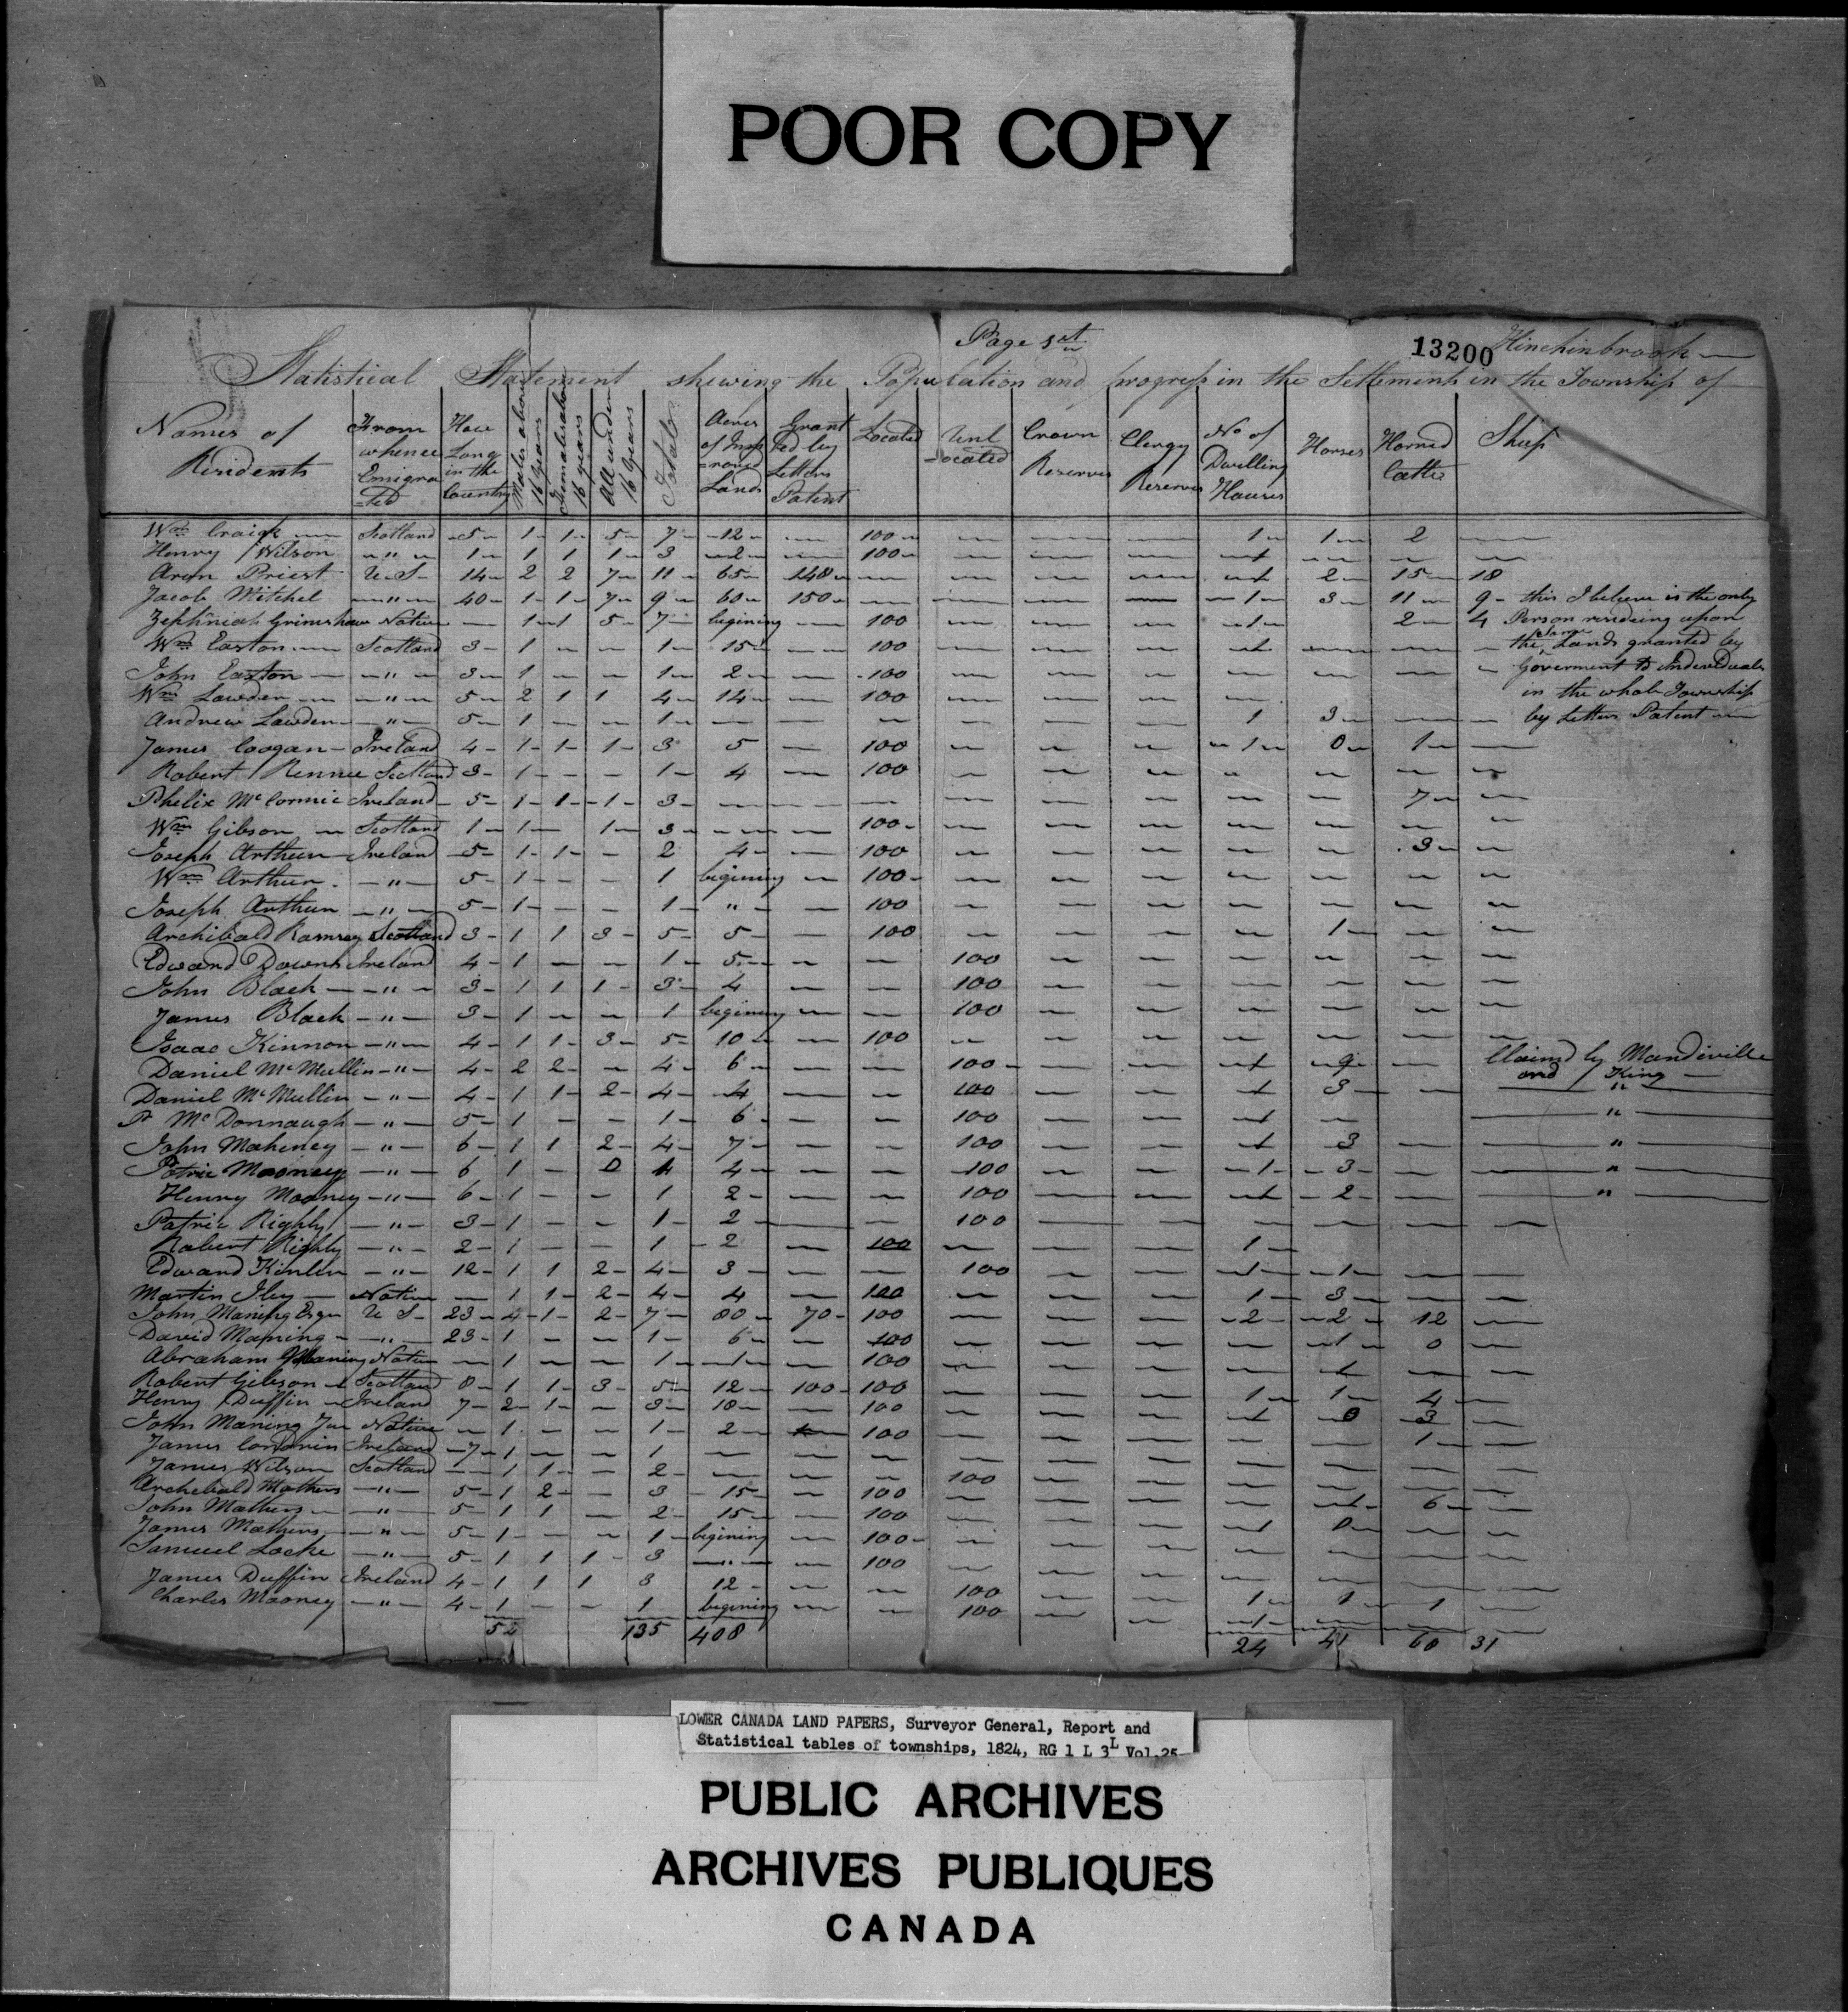 POOR COPY
Page 1st
13200 Hinchinbrook
Statistical Statement shewing the Population and progress in the Settlement in the Township of
Names of Residents | From whence Emigra=ted | How Long in the Country | Males above 16 Years | Females above 16 years | All under 16 Years | Total | Acres of Imp=roved Lands | Grant=ed by Letters Patent | Located | Unlocated | Crown Reserves | Clergy Reserves | No of Dwelling Houses | Horses | Horned Cattle | Sheep
Wm Craick — Scotland 5 1 1 5 7 12 — 100 — — — 1 1 2 —
Henry Wilson " 1 1 1 1 3 2 — 100 — — — 1 — — —
Aron Priest U.S. 14 2 2 7 11 65 148 — — — — 1 2 15 18
Jacob Mitchel " 40 1 1 7 9 60 150 — — — — 1 3 11 9 - this I believe is the only
Zephniah Grimshaw Native — 1 1 5 7 begining — 100 — — — 1 2 4 Person residing upon
Wm Easton Scotland 3 1 — — 1 15 — 100 — — — 1 — — — the same Lands granted by
John Easton — " 3 1 — — 1 2 — 100 — — — — — — — Goverment to Individuals
Wm Lowden — " 5 2 1 1 4 14 — 100 — — — — in the whole Township
Andrew Lowden — " 5 1 — — 1 — — — — — — 1 3 — — by Letters Patent
James Coogan — Ireland 4 1 1 1 3 5 — 100 — — — 1 0 1 —
Robert Rennee Scotland 3 1 — — 1 4 — 100 — — — — — — —
Phelix McCormic Ireland 5 1 1 1 3 — — — — — — — — 7 —
Wm Gibson — Scotland 1 1 — 1 3 — — 100 — — — — — — —
Joseph Arthur Ireland 5 1 1 — 2 4 — 100 — — — — — 3 —
Wm Arthur — " — 5 1 — — 1 begining — 100 — — — — — — —
Joseph Arthur — " — 5 1 — — 1 " — 100 — — — — — — —
Archibald Ramsay Scotland 3 1 1 3 5 5 — 100 — — — — 1 — —
Edward Downs Ireland 4 1 — — 1 5 — — 100 — — — — — —
John Black — " — 3 1 1 1 3 4 — — 100 — — — — — —
James Black — " — 3 1 — — 1 begining — — 100 — — — — — —
Isaac Kinnon — " — 4 1 1 3 5 10 — 100 — — — — — — —
Daniel McMullin — " — 4 2 2 — 4 6 — — 100 — — 1 9 — Claimd by Mandeville and King
Daniel McMullin — " — 4 1 1 2 4 4 — — 100 — — 1 3 — "
P McDonnaugh — " — 5 1 — — 1 6 — — 100 — — 1 — "
John Maheney — " — 6 1 1 2 4 7 — — 100 — — 1 3 — "
Patric Mooney — " — 6 1 — 0 1 4 — — 100 — — 1 3 — "
Henry Mooney — " — 6 1 — — 1 2 — — 100 — — 1 2 — "
Patric Righly — " — 3 1 — — 1 2 — — 100 — — — — — —
Robert Righly — " — 2 1 — — 1 2 — 100 — — — 1
Edward Kinlin — " — 12 1 1 2 4 3 — — 100 — — 1 1 — —
Martin Iley — Native — 1 1 2 4 4 — 100 — — — 1 3 — —
John Maning Esqr U S 23 4 1 2 7 80 70 100 — — — 2 2 12 —
David Maning — " — 23 1 — — 1 6 — 100 — — — — 1 0 —
Abraham Maning Native — 1 — — 1 1 — 100 — — — — 1 — —
Robert Gibson Scotland 8 1 1 3 5 12 100 100 — — — 1 1 4 —
Henry Duffin Ireland 7 2 1 — 3 18 — 100 — — — 1 0 3 —
John Maning Jur Native — 1 — — 1 2 — 100 — — — — — 1 —
James Ireland 7 1 — — 1 — — — — — — — — — —
James Wilson Scotland — 1 1 — 2 — — — 100 — — — — — —
Archebald Mathers — " — 5 1 2 — 3 15 — 100 — — — — 1 6 —
John Mathers — " — 5 1 1 — 2 15 — 100 — — — 1 0 — —
James Mathers — " — 5 1 — — 1 begining — 100 — — — — — — —
Samuel Locke — " — 5 1 1 1 3 — " — 100 — — — — — — —
James Duffin Ireland 4 1 1 1 3 12 — — 100 — — 1 1 1 —
Charles Mooney — " — 4 1 — — 1 begining — — 100 — — 1 — — —
52 135 408 24 41 60 31
LOWER CANADA LAND PAPERS, Surveyor General, Report and
Statistical tables of townships, 1824, RG 1 L 3L Vol.25
PUBLIC ARCHIVES
ARCHIVES PUBLIQUES
CANADA